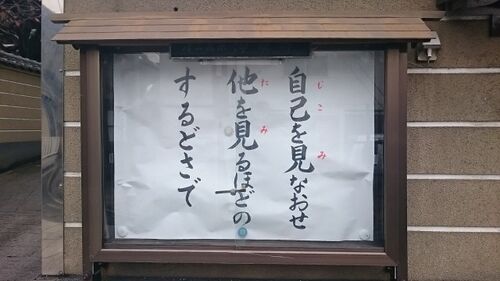 自己を見なおせ
他を見るほどの
するどさで
じこ み
たみ